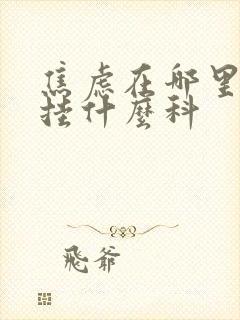 焦虑在哪里
挂什麼科
飛爷